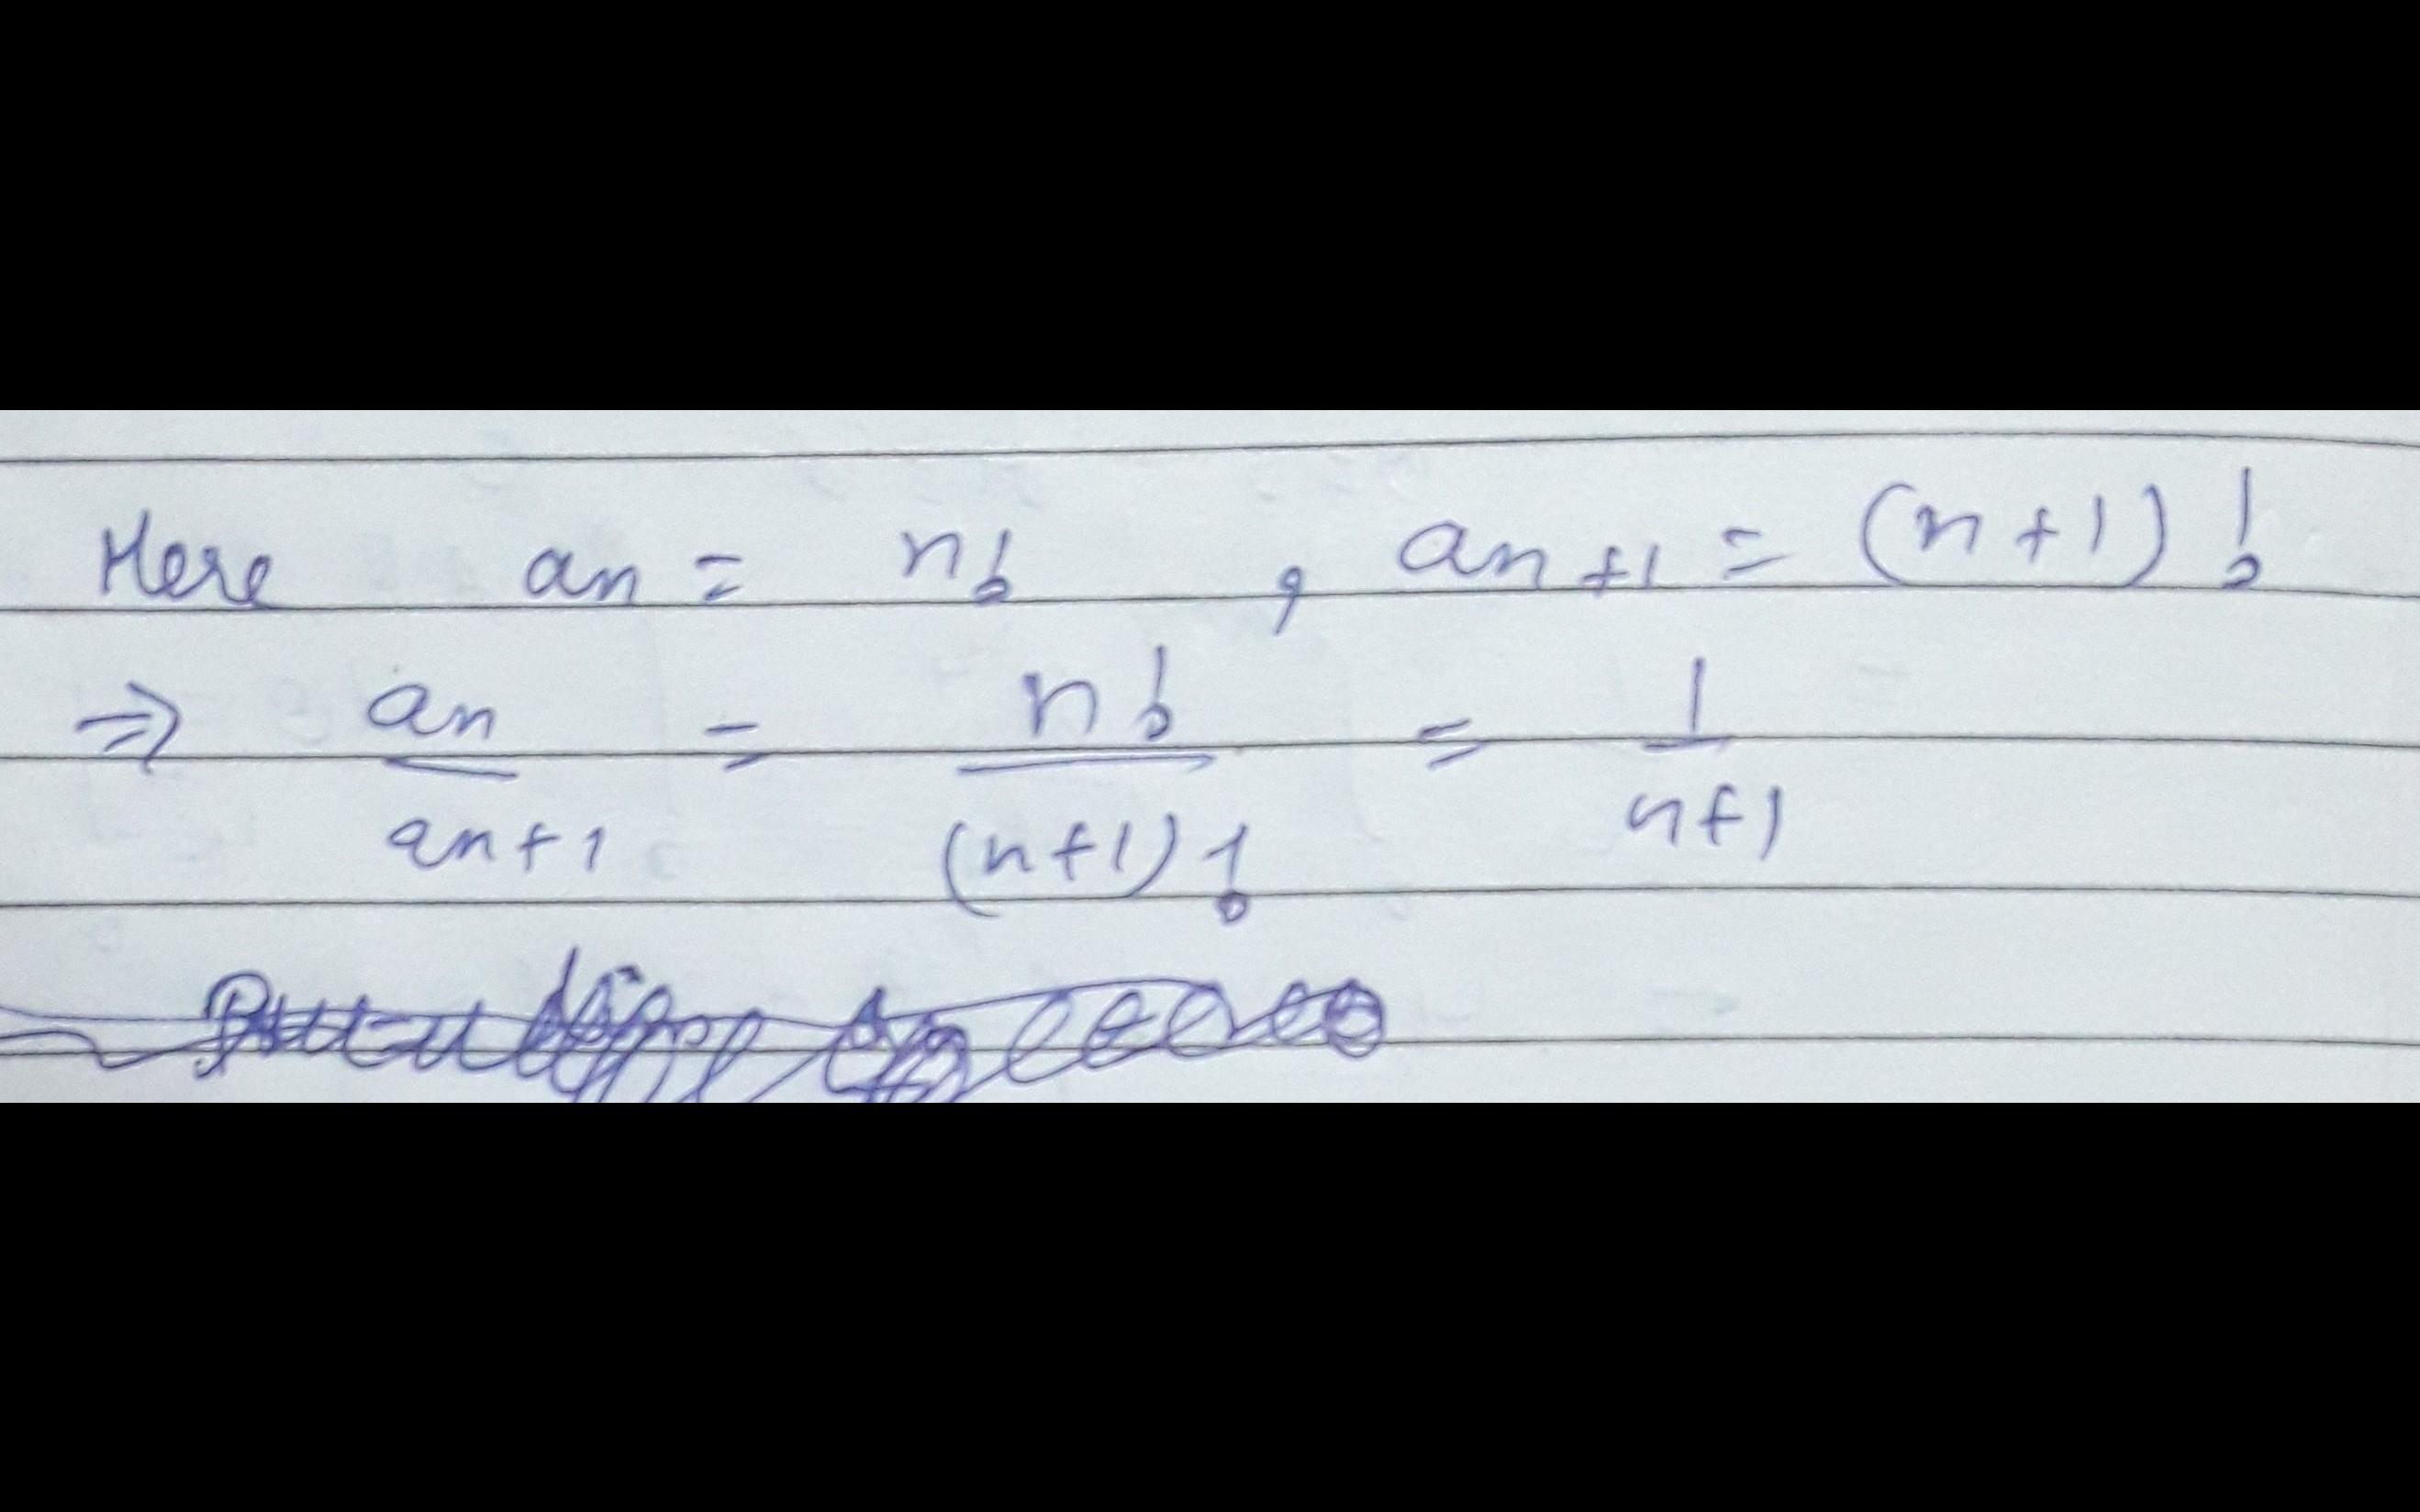 Here an = n! , an+1 = (n+1)!
⇒ an/an+1 = n!/(n+1)! = 1/n+1